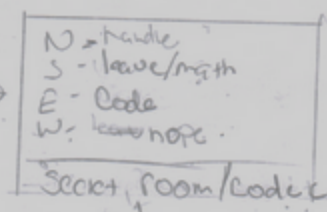 N - handle
S - leave/math
E - Code
W - nope.
Secret room/codex